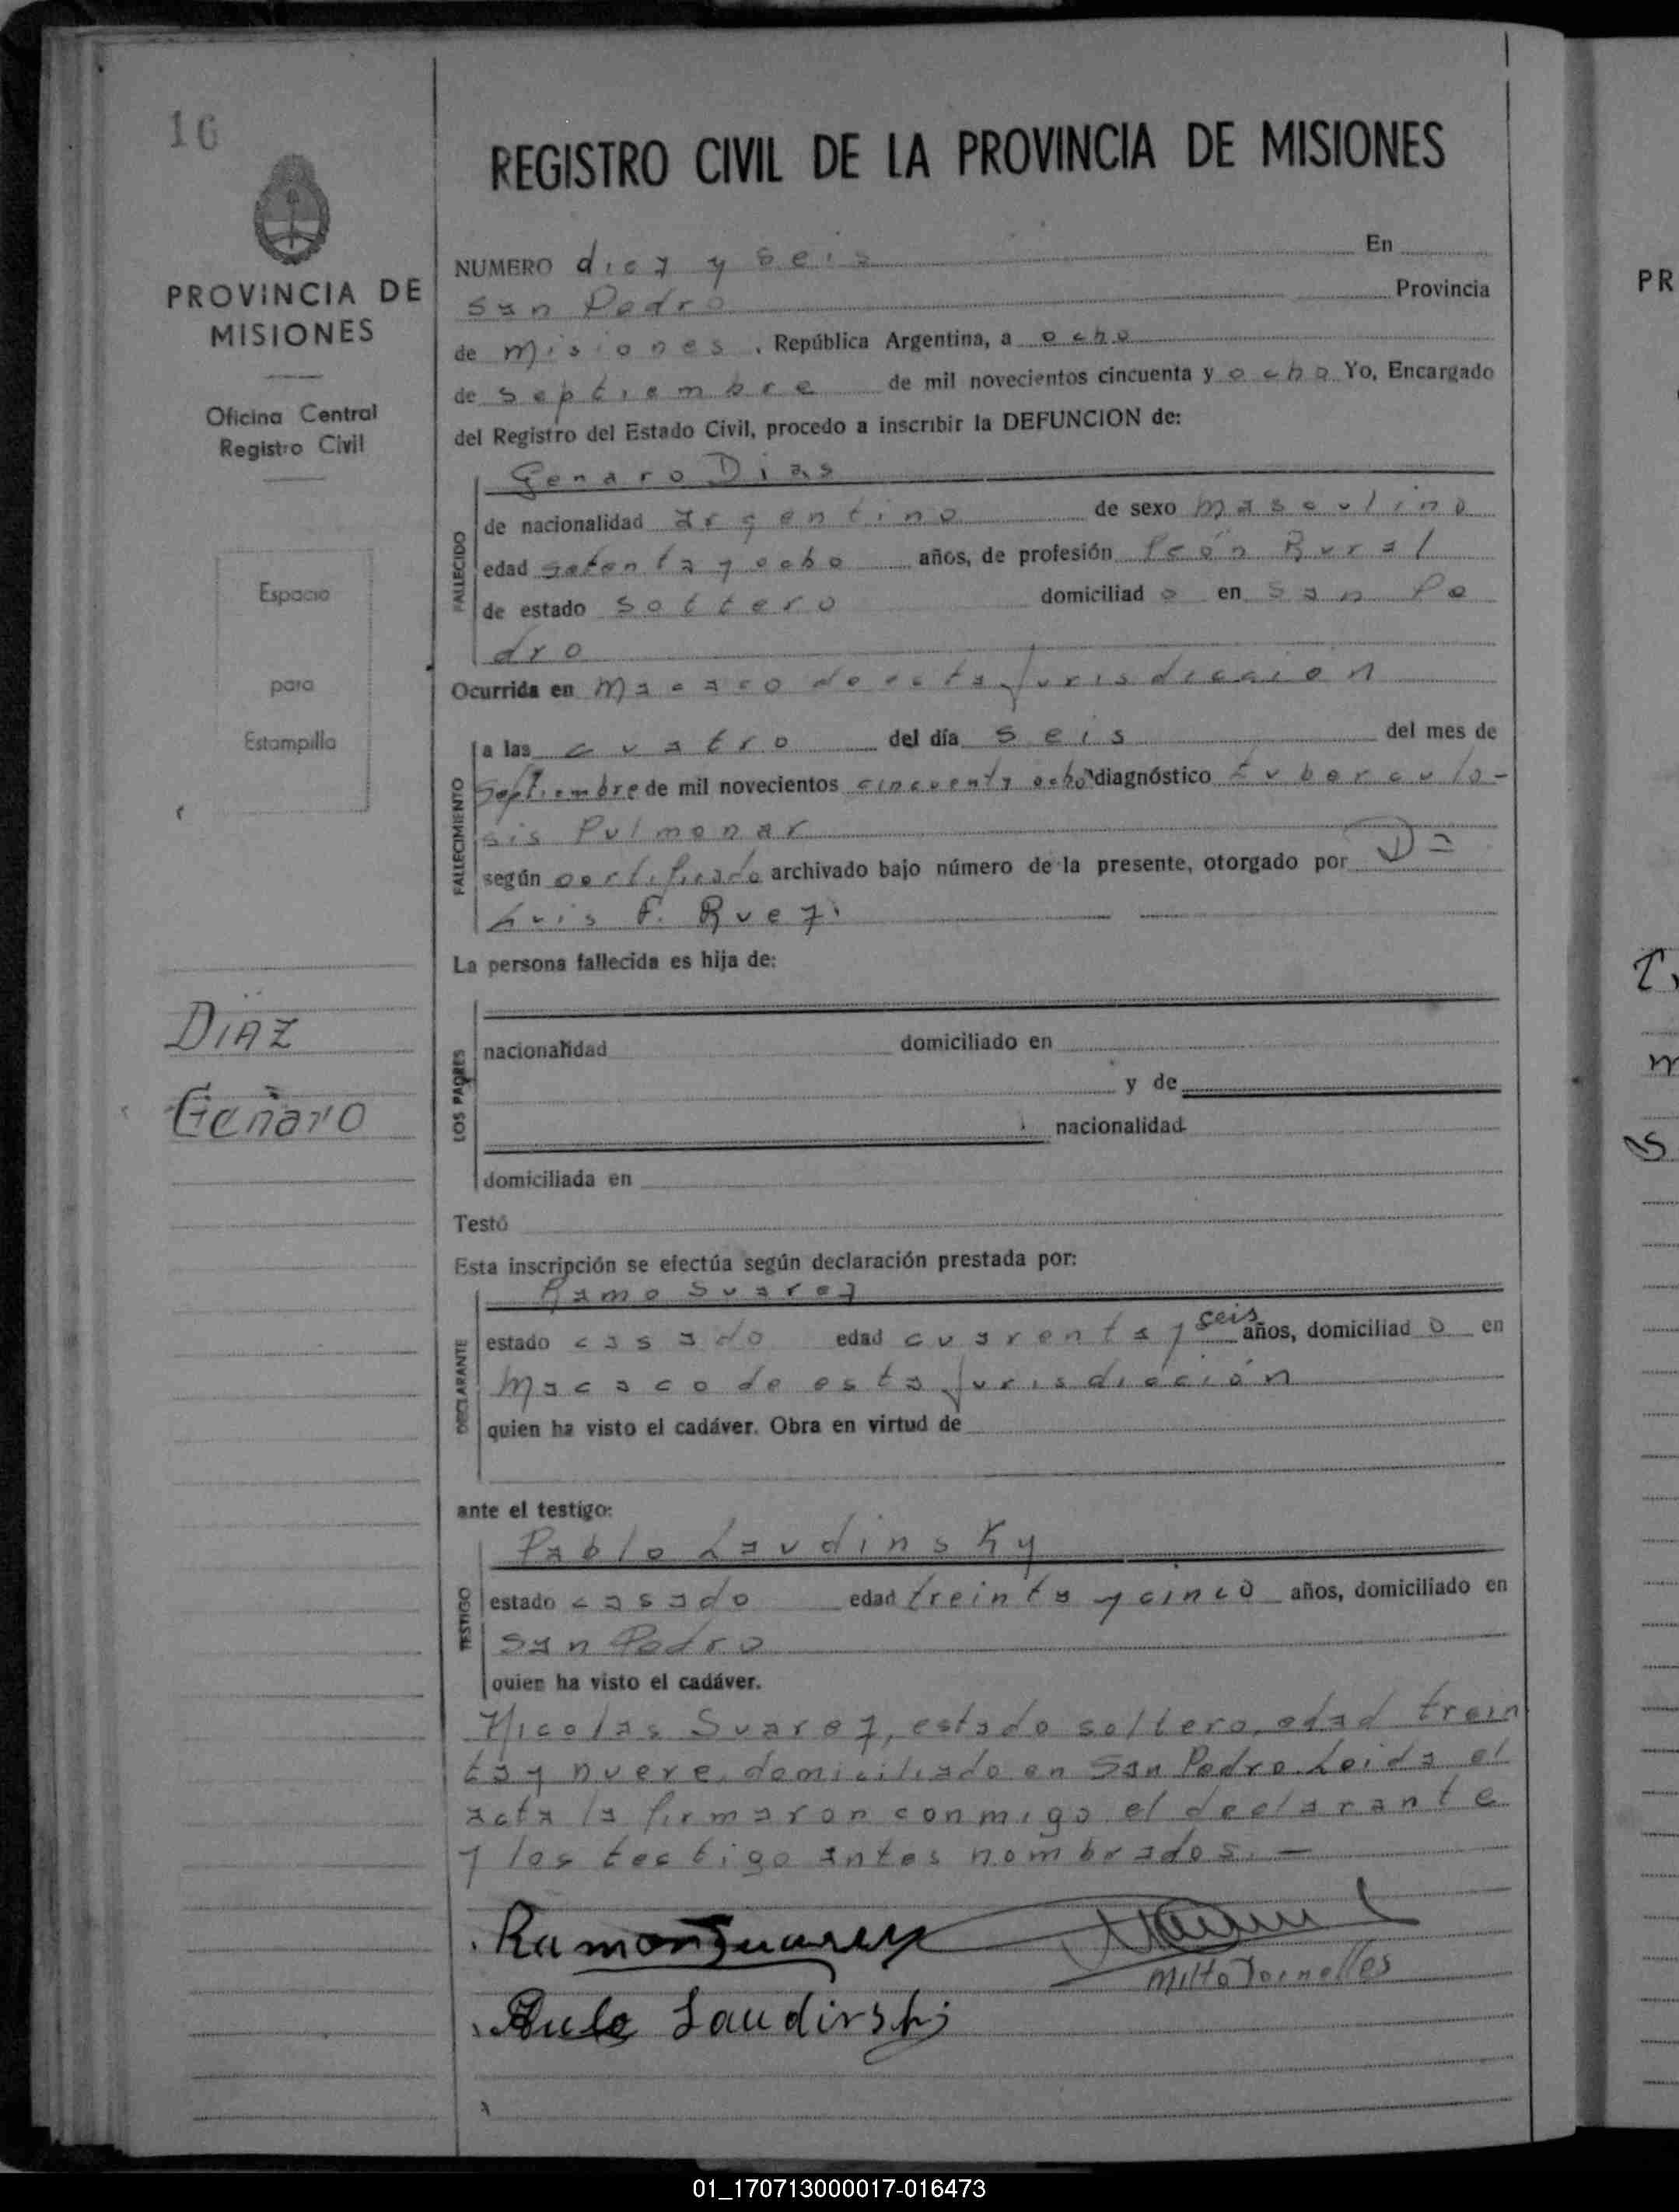 16
PROVINCIA DE
MISIONES
Oficina Central
Registro Civil
Espacio
para
Estampilla
DIAZ
Genaro
REGISTRO CIVIL DE LA PROVINCIA DE MISIONES
NUMERO diez y seis En
San Pedro Provincia
de Misiones, República Argentina, a ocho
de septiembre de mil novecientos cincuenta y ocho Yo, Encargado
del Registro del Estado Civil, procedo a inscribir la DEFUNCION de:
Genaro Dias
FALLECIDO
de nacionalidad argentino de sexo masculino
edad setenta y ocho años, de profesión Peón Rural
de estado soltero domiciliad o en San Pe
dro
Ocurrida en Macaco de esta jurisdiccion
FALLECIMIENTO
a las cuatro del día seis del mes de
septiembre de mil novecientos cincuenta ocho diagnóstico tuberculo-
sis Pulmonar
según certificado archivado bajo número de la presente, otorgado por D=
Luis F. Ruez.
La persona fallecida es hija de:
LOS PADRES
nacionalidad domiciliado en
y de
nacionalidad
domiciliada en
Testó
Esta inscripción se efectúa según declaración prestada por:
Ramo Suarez
DECLARANTE
estado casado edad cuarenta y seis años, domiciliad o en
Macaco de esta jurisdicción
quien ha visto el cadáver. Obra en virtud de
ante el testigo:
Pablo Laudinsky
TESTIGO
estado casado edad treinta y cinco años, domiciliado en
San Pedro
quien ha visto el cadáver.
Nicolas Suarez, estado soltero, edad trein
ta y nueve, domiciliado en San Pedro. Leida el
acta la firmaron conmigo el declarante
y los testigo antes nombrados. —
Ramon Suarez
Milto Dornelles
Laudinski
PR
01_170713000017-016473